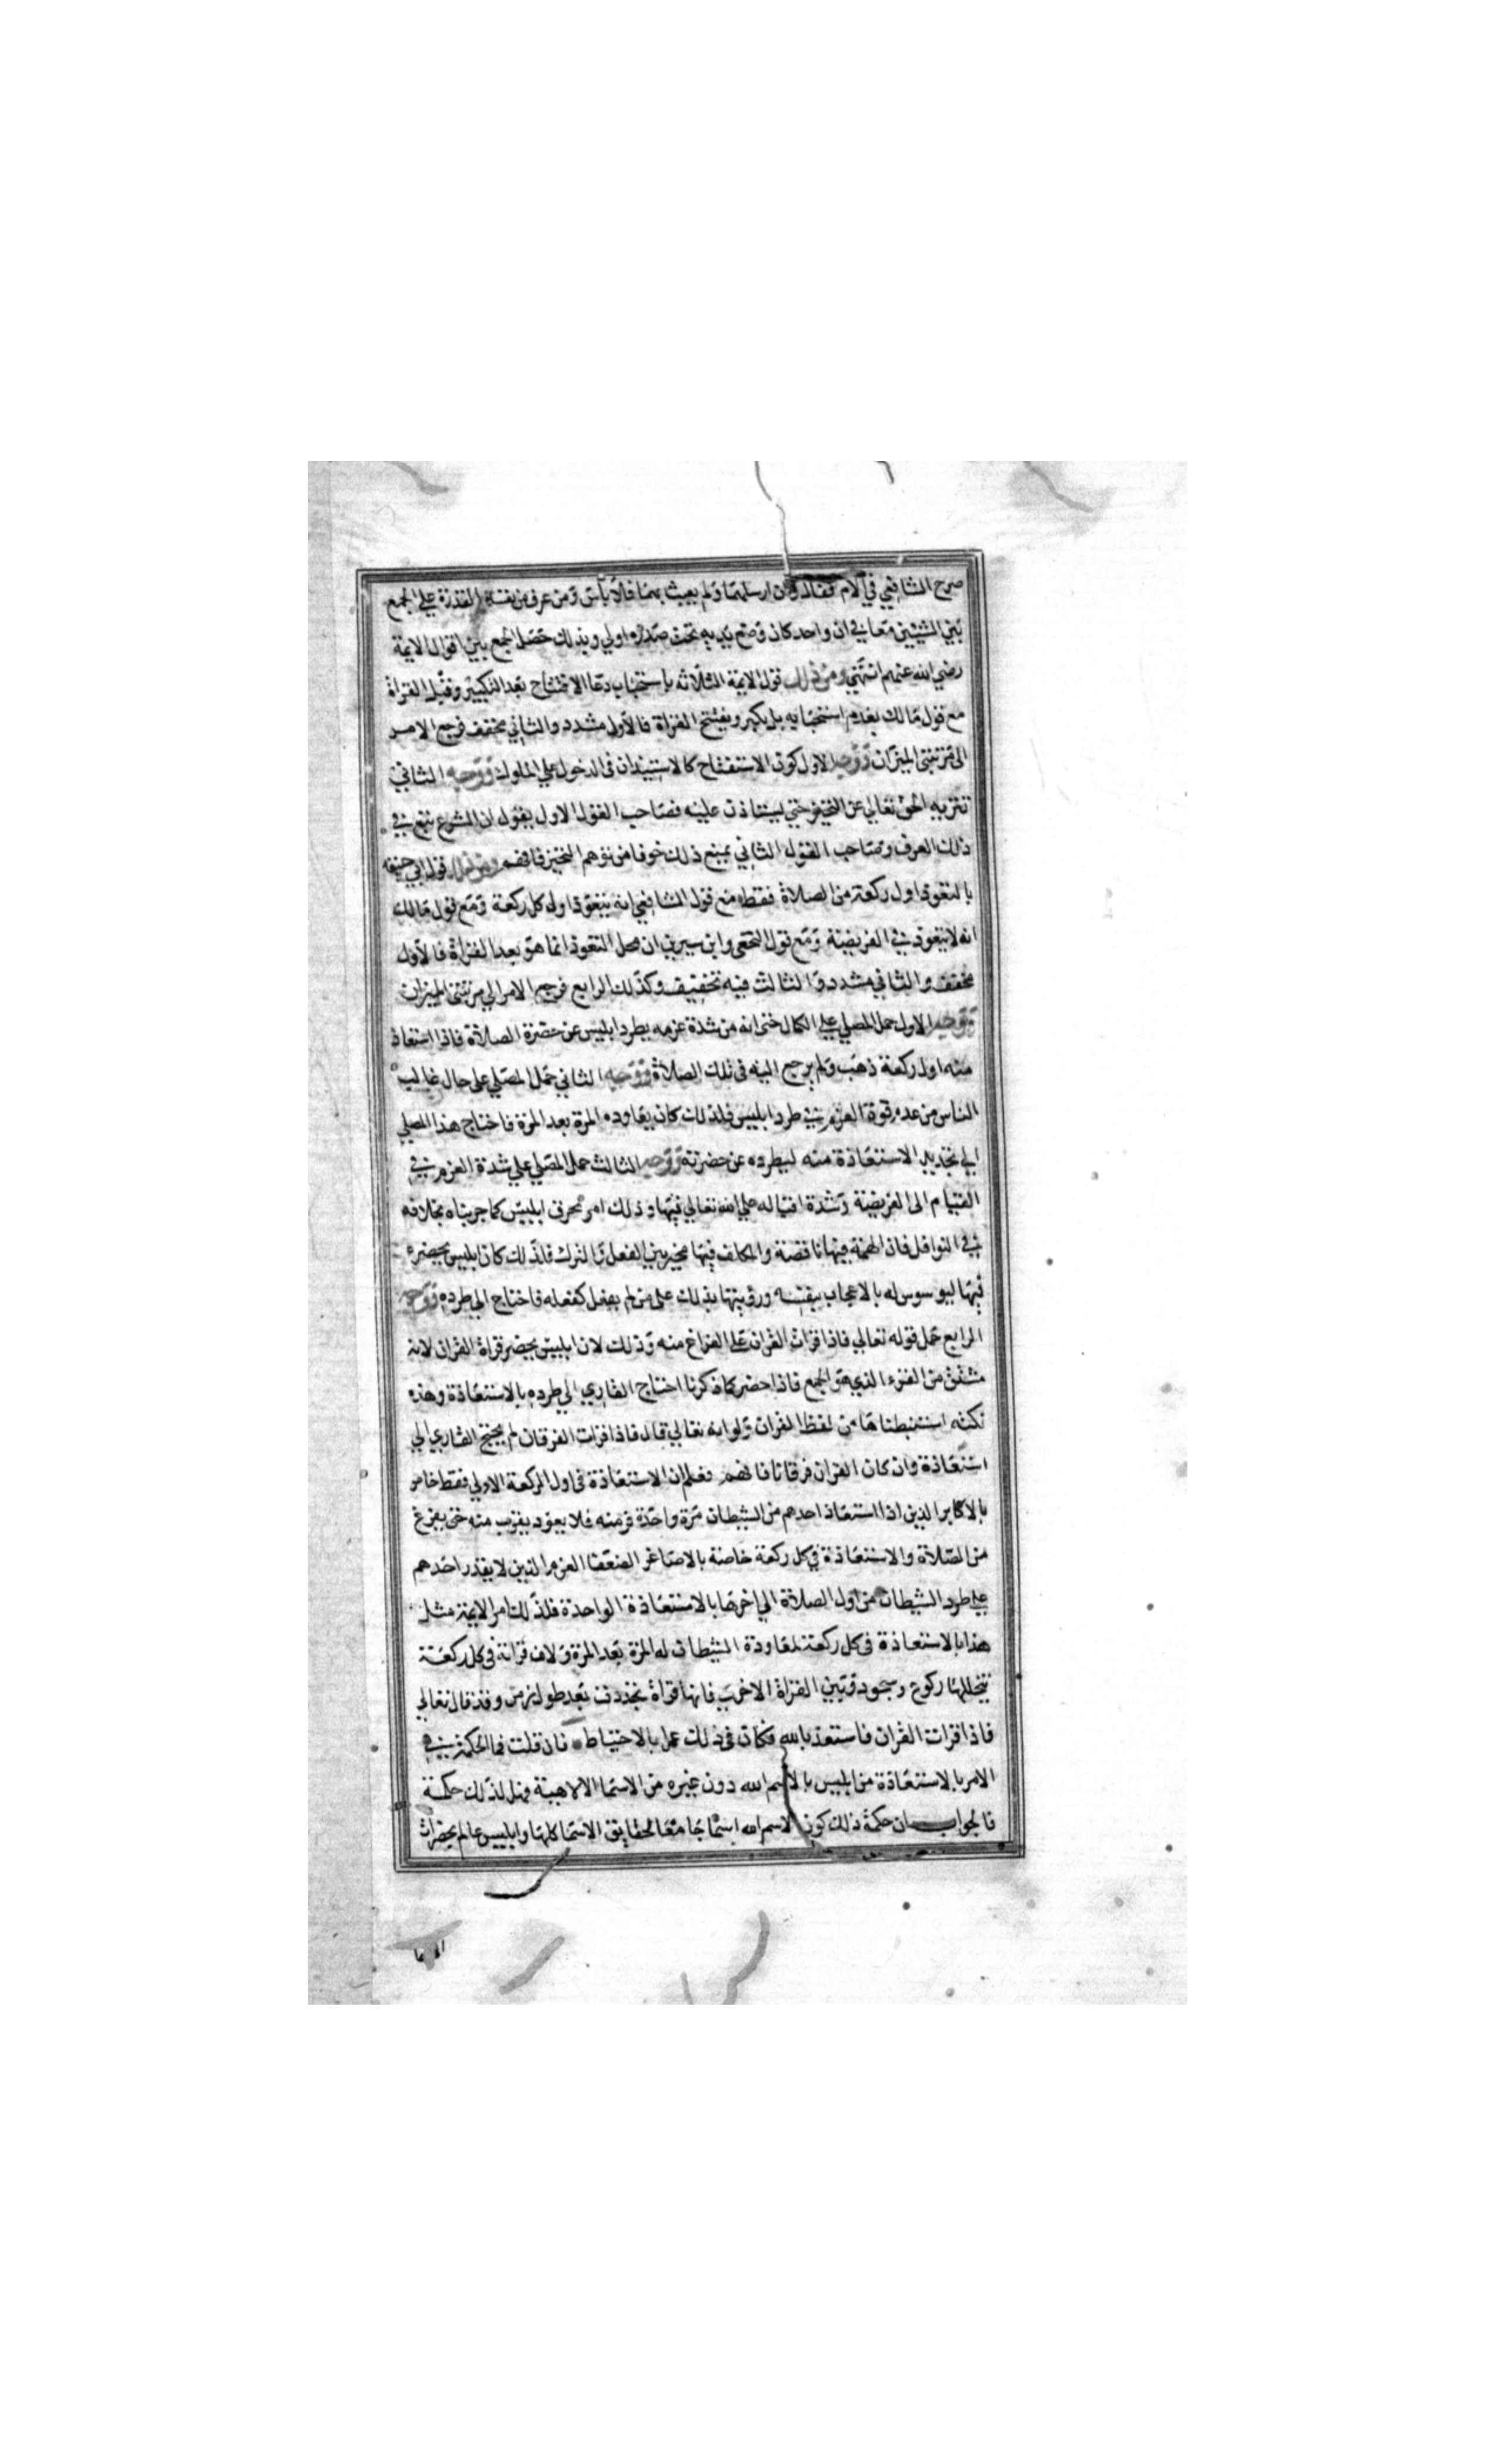 صرح الشافعي في الام فقال وان ارسلهما ولم يعبث بهما فلا بأس ومن عرف من نفسه القدرة علي الجمع
بين الشيئين معا في ان واحد كان وضع يديه تحت صدره اولي وبذلك حصل الجمع بين اقوال الايمة
رضي الله عنهم انتهي ومن ذلك قول الايمة الثلاثه باستحباب دعا الافتتاح بعد التكبير وقبل القراة
مع قول مالك بعدم استحبابه بل يكبر ويفتتح القراة فالاول مشدد والثاني مخفف فرجع الامر
الى مرتبتى الميزان ووجه الاول كون الاستفتاح كالاستيذان فى الدخول علي الملوك ووجه الثاني
تنزيه الحق تعالي عن التحيز حتي ليستاذن عليه فصاحب القول الاول يقول ان الشرع يتبع في
ذلك العرف وصاحب القول الثاني يمنع ذلك خوفا من توهم التحيز فافهم ومن ذلك قول ابي حنيفة
بالتعوذ اول ركعة من الصلاة فقط مع قول الشافعي انه يتعوذ اول كل ركعة ومع قول مالك
انه لا يتعوذ في الفريضة ومع قول النخعى وابن سيرين ان محل التعوذ انما هو بعد القراة فالاول
مخفف والثاني مشدد والثالث فيه تخفيف وكذلك الرابع فرجع الامر الي مرتبتى الميزان
ووجه الاول حمل المصلي علي الكمال حتى انه من شدة عزمه يطرد ابليس عن حضرة الصلاة فاذا استعاذ
منه اول ركعة ذهب ولم يرجع اليه فى تلك الصلاة ووجه الثاني حمل المصلي على حال غالب
الناس من عدم قوة العزم في طرد ابليس فلذلك كان يعاوده المرة بعد المرة فاحتاج هذا المصلي
الي تجديد الاستعاذة منه ليطرده عن حضرته ووجه الثالث حمل المصلي علي شدة العزم في
القيام الى الفريضة وشدة اقباله علي الله تعالي فيها وذلك امر يحرق ابليس كما جربناه بخلافه
في النوافل فان الهمة فيها ناقصة والمكلف فيها مخير بين الفعل والترك فلذلك كان ابليس يحضره
فيها ليوسوس له بالاعجاب بنفسه ورؤيتها بذلك على من لم يفعل كفعله فاحتاج الي طرده ووجه
الرابع حمل قوله تعالي فاذا قرات القران علي الفراغ منه وذلك لان ابليس يحضر قراة القران لانه
مشتق من القرء الذي هو الجمع فاذا حضر كما ذكرنا احتاج القاري الي طرده بالاستعاذة وهذه
نكتة استنبطناها من لفظ القران ولو انه تعالي قال فاذا قرات الفرقان لم يحتج القاري الي
استعاذة وان كان القران فرقانا فافهم فعلم ان الاستعاذة فى اول الركعة الاولي فقط خاص
بالاكابر الذين اذا استعاذ احدهم من الشيطان مرة واحدة فر منه فلا يعود يقرب منه حتى يفرغ
من الصلاة والاستعاذة في كل ركعة خاصة بالاصاغر الضعفا العزم الذين لا يقدر احدهم
علي طرد الشيطان من اول الصلاة الي اخرها بالاستعاذة الواحدة فلذلك امر الايمة مثل
هذا بالاستعاذة فى كل ركعة لمعاودة الشيطان له المرة بعد المرة ولان قراته فى كل ركعة
يتخللها ركوع وسجود وبين القراة الاخري فانها قراة تجددت بعد طول زمن وقد قال تعالي
فاذا قرات القران فاستعذ بالله فكان فى ذلك عمل بالاحتياط فان قلت فما الحكمة في
الامر بالاستعاذة من ابليس بالاسم الله دون غيره من الاسما الالاهية فهل لذلك حكمة
فالجواب ان حكمة ذلك كون الاسم الله اسما جامعا لحقايق الاسما كلها وابليس عالم بحضرات